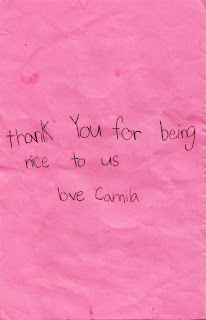 thank You for being
nice to us
love Camila